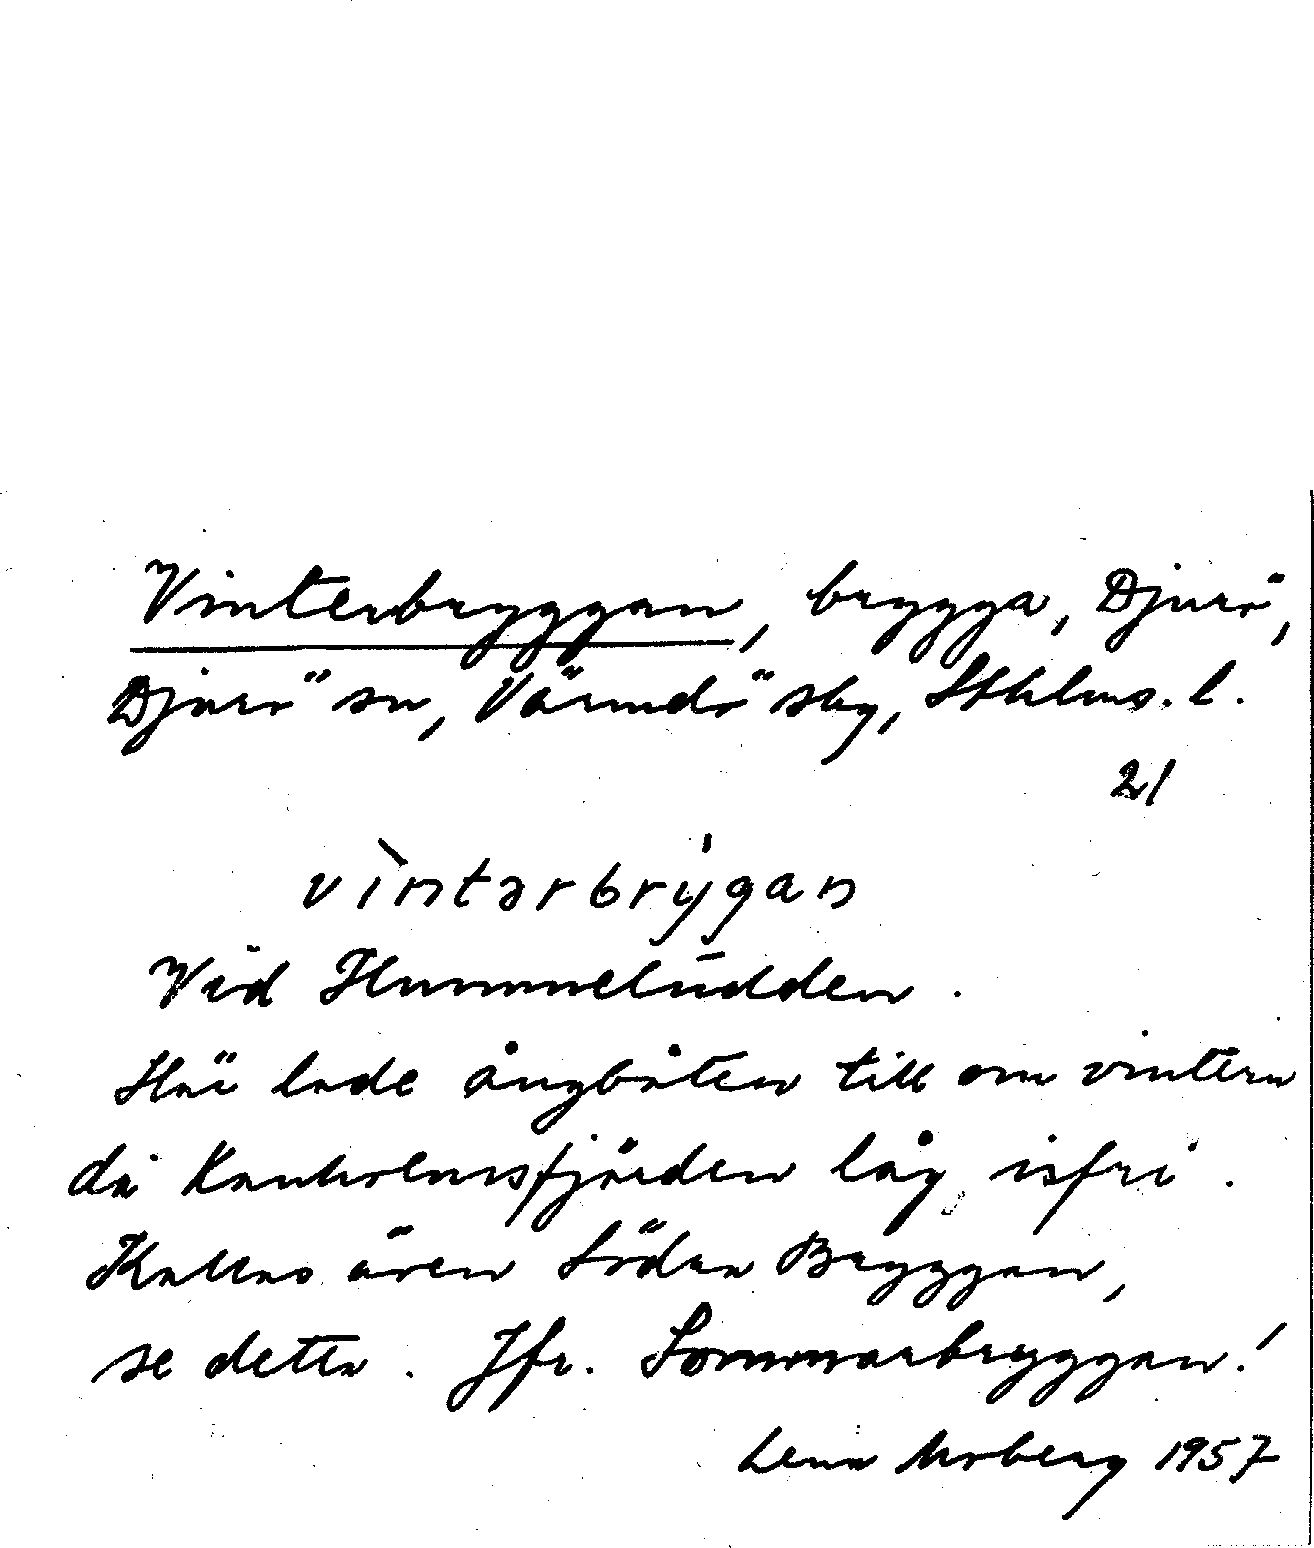 Vinterbryggan, brygga, Djurö,
Djurö sn, Värmdö skg, Sthlms. l.
21
vìntarbrýgan
Vid Hummeludden.
Här lade ångbåten till om vintern
då Kanholmsfjärden låg isfri.
Kallas även Södra Bryggan,
se detta. Jfr. Sommarbryggan!
Lena Moberg 1957